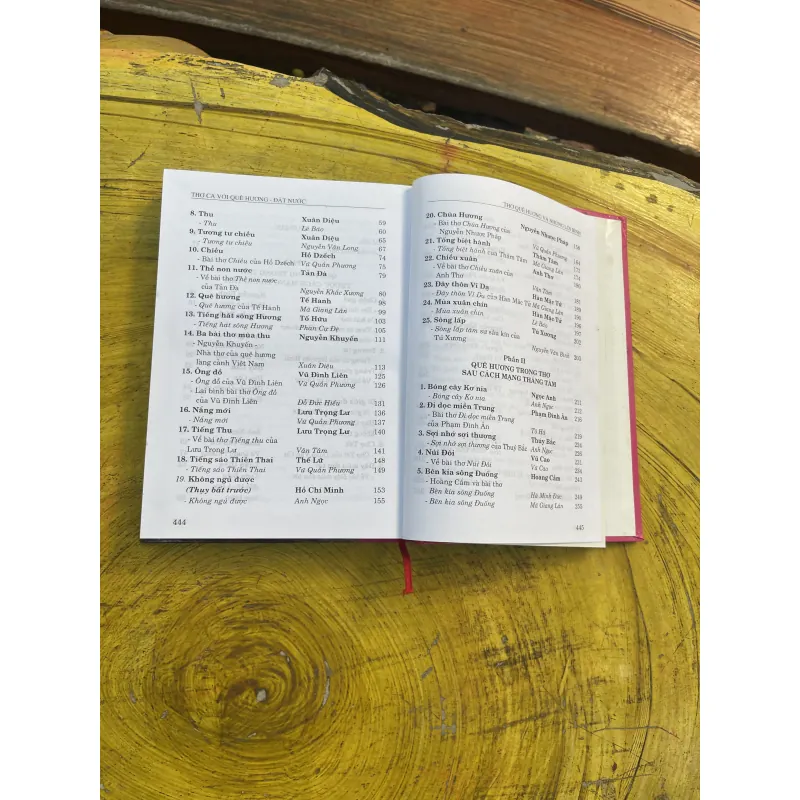 THƠ CA VỚI QUÊ HƯƠNG - ĐẤT NƯỚC
8. Thu Xuân Diệu 59
- Thu Lê Bảo 60
9. Tương tư chiều Xuân Diệu 65
- Tương tư chiều Nguyễn Văn Long 67
10. Chiều Hồ Dzếch 74
- Bài thơ Chiều của Hồ Dzếch Vũ Quần Phương 75
11. Thề non nước Tản Đà 79
- Về bài thơ Thề non nước
của Tản Đà Nguyễn Khắc Xương 80
12. Quê hương Tế Hanh 98
- Quê hương của Tế Hanh Mã Giang Lân 99
13. Tiếng hát sông Hương Tố Hữu 103
- Tiếng hát sông Hương Phan Cự Đệ 105
14. Ba bài thơ mùa thu Nguyễn Khuyến 111
- Nguyễn Khuyến -
Nhà thơ của quê hương
làng cảnh Việt Nam Xuân Diệu 113
15. Ông đồ Vũ Đình Liên 125
- Ông đồ của Vũ Đình Liên Vũ Quần Phương 126
- Lại bình bài thơ Ông đồ
của Vũ Đình Liên Đỗ Đức Hiểu 131
16. Nắng mới Lưu Trọng Lư 136
- Nắng mới Vũ Quần Phương 137
17. Tiếng Thu Lưu Trọng Lư 140
- Về bài thơ Tiếng thu của
Lưu Trọng Lư Văn Tâm 141
18. Tiếng sáo Thiên Thai Thế Lữ 148
- Tiếng sáo Thiên Thai Vũ Quần Phương 149
19. Không ngủ được
(Thụy bất trước) Hồ Chí Minh 153
- Không ngủ được Anh Ngọc 155
444
THƠ QUÊ HƯƠNG VÀ NHỮNG LỜI BÌNH
20. Chùa Hương Nguyễn Nhược Pháp 158
- Bài thơ Chùa Hương của
Nguyễn Nhược Pháp Vũ Quần Phương
21. Tống biệt hành Thâm Tâm
- Tống biệt hành của Thâm Tâm Mã Giang Lân 174
22. Chiều xuân Anh Thơ
- Về bài thơ Chiều xuân của
Anh Thơ Văn Tâm
23. Đây thôn Vĩ Dạ Hàn Mặc Tử
- Đây thôn Vĩ Dạ của Hàn Mặc Tử Mã Giang Lân
24. Mùa xuân chín Hàn Mặc Tử
- Mùa xuân chín Lê Bảo
25. Sông lấp Tú Xương
- Sông lấp tâm sự sâu kín của
Tú Xương Nguyễn Văn 203
Phần II
QUÊ HƯƠNG TRONG THƠ
SAU CÁCH MẠNG THÁNG TÁM
1. Bóng cây Kơ nia Ngọc Anh 211
- Bóng cây Kơ nia Anh Ngọc 212
2. Đi dọc miền Trung Phạm Đình Ân
- Bài thơ Đi dọc miền Trung
của Phạm Đình Ân Tô Hà
3. Sợi nhớ sợi thương Thuý Bắc
- Sợi nhớ sợi thương của Thuý Bắc Anh Ngọc
4. Núi Đôi Vũ Cao
- Về bài thơ Núi Đôi Vũ Cao
5. Bên kia sông Đuống Hoàng Cầm 243
- Hoàng Cầm và bài thơ
Bên kia sông Đuống Hà Minh Đức
- Bên kia sông Đuống Mã Giang Lân 255
445